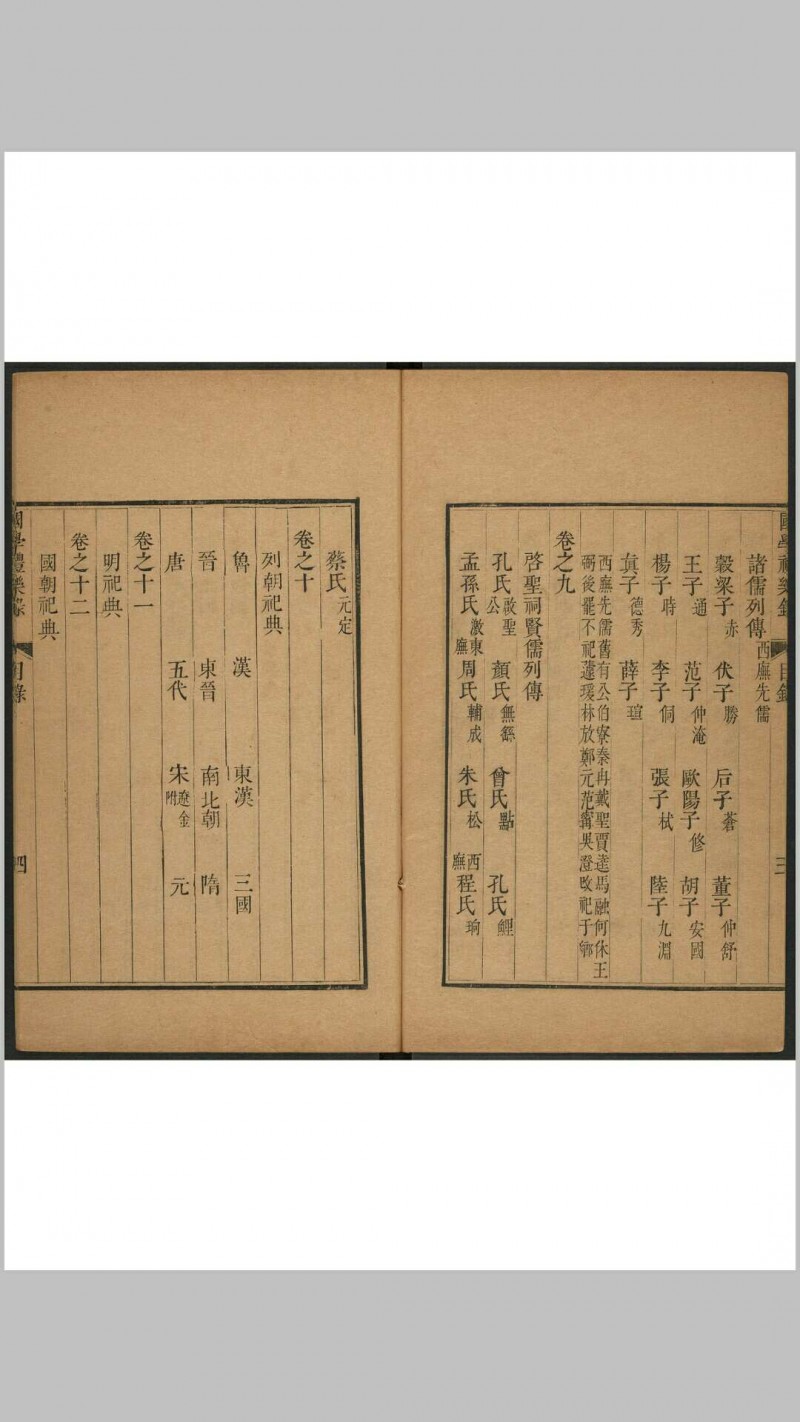 國學禮樂錄 目錄 三
諸儒列傳 西廡先儒
穀梁子 赤 伏子 勝 后子 蒼 董子 仲舒
王子 通 范子 仲淹 歐陽子 修 胡子 安國
楊子 時 李子 侗 張子 栻 陸子 九淵
真子 德秀 薛子 瑄
西廡先儒舊有公伯寮秦冉戴聖賈逵馬融何休王
弼後罷不祀蘧瑗林放鄭元范甯吳澄改祀于鄉
卷之九
啓聖祠賢儒列傳
孔氏 啟聖公 顏氏 無繇 曾氏 點 孔氏 鯉
孟孫氏 激 東廡 周氏 輔成 朱氏 松 西廡 程氏 珦
蔡氏 元定
卷之十
列朝祀典
魯 漢 東漢 三國
晉 東晉 南北朝 隋
唐 五代 宋 遼金附 元
卷之十一
明祀典
卷之十二
國朝祀典
國學禮樂錄 目錄 四